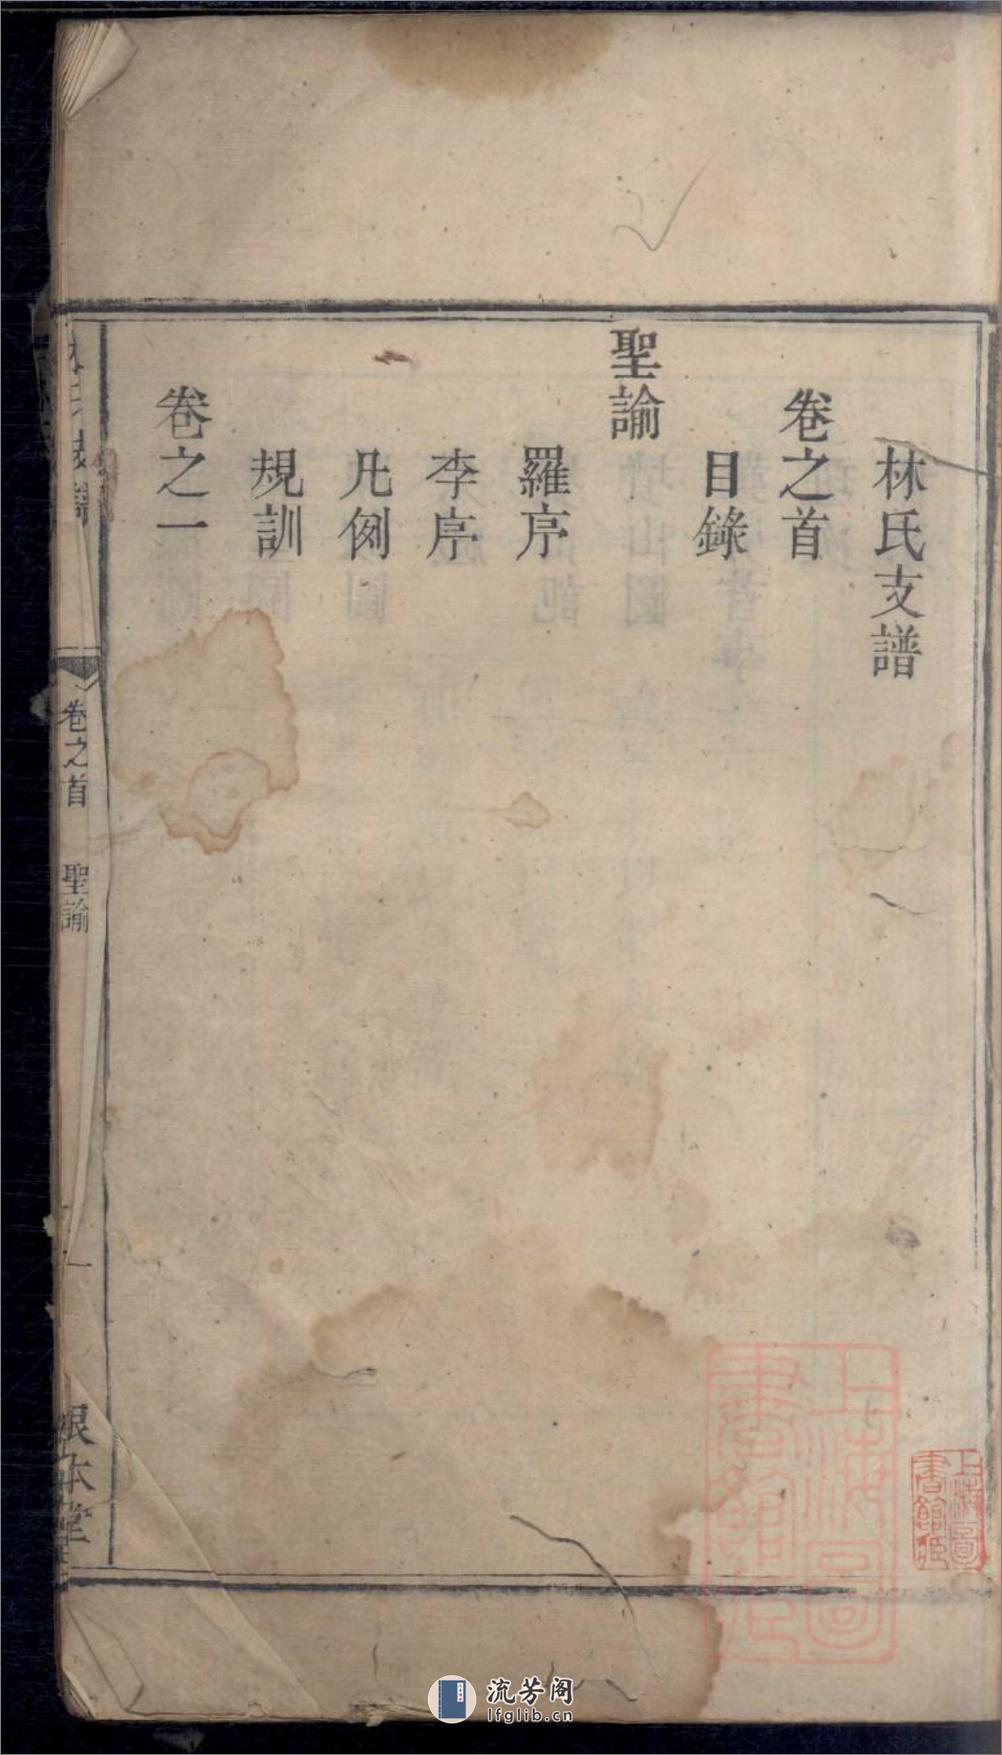 林氏支譜
卷之首
目錄
聖諭
羅序
李序
凡例
規訓
卷之一
卷之首
聖諭
一
本堂
上海圖書館藏
上海圖書館藏
流芳阁
lfglib.cn